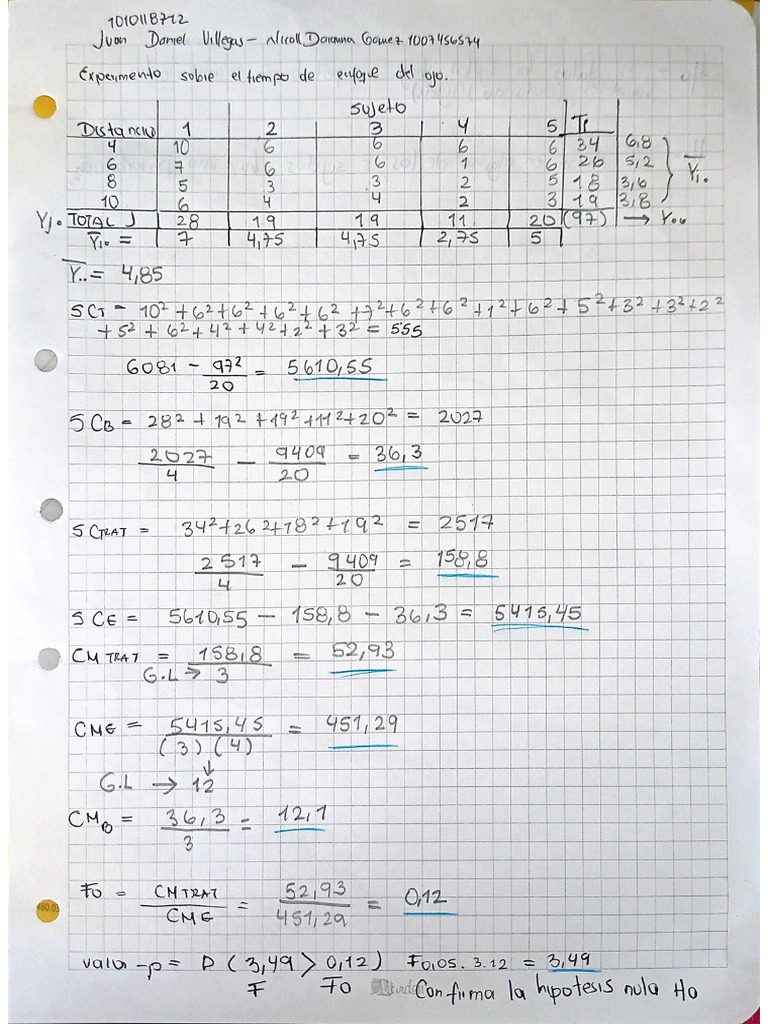 1010118712
Juan Daniel Villegas - Nicoll Daianna Gomez 1007456574
Experimento sobre el tiempo de enfoque del ojo.
Sujeto
Distancia 1 2 3 4 5 Ti
4 10 6 6 6 6 34 6,8
6 7 6 6 1 6 26 5,2
8 5 3 3 2 5 18 3,6
10 6 4 4 2 3 19 3,8
Yi.
Yj. TOTAL J 28 19 19 11 20 (97) → Y..
Yj. = 7 4,75 4,75 2,75 5
Y.. = 4,85
SCT = 10² + 6² + 6² + 6² + 6² + 7² + 6² + 6² + 1² + 6² + 5² + 3² + 3² + 2²
+ 5² + 6² + 4² + 4² + 2² + 3² = 555
6081 - 97²/20 = 5610,55
SCB = 28² + 19² + 19² + 11² + 20² = 2027
2027/4 - 9409/20 = 36,3
SCTRAT = 34² + 26² + 18² + 19² = 2517
2517/4 - 9409/20 = 158,8
SCE = 5610,55 - 158,8 - 36,3 = 5415,45
CM TRAT = 158,8/3 = 52,93
G.L → 3
CME = 5415,45/(3)(4) = 451,29
G.L → 12
CMB = 36,3/3 = 12,1
F0 = CMTRAT/CME = 52,93/451,29 = 0,12
valor -p = P (3,49 > 0,12) F0,05. 3.12 = 3,49
F F0 Confirma la hipotesis nula H0